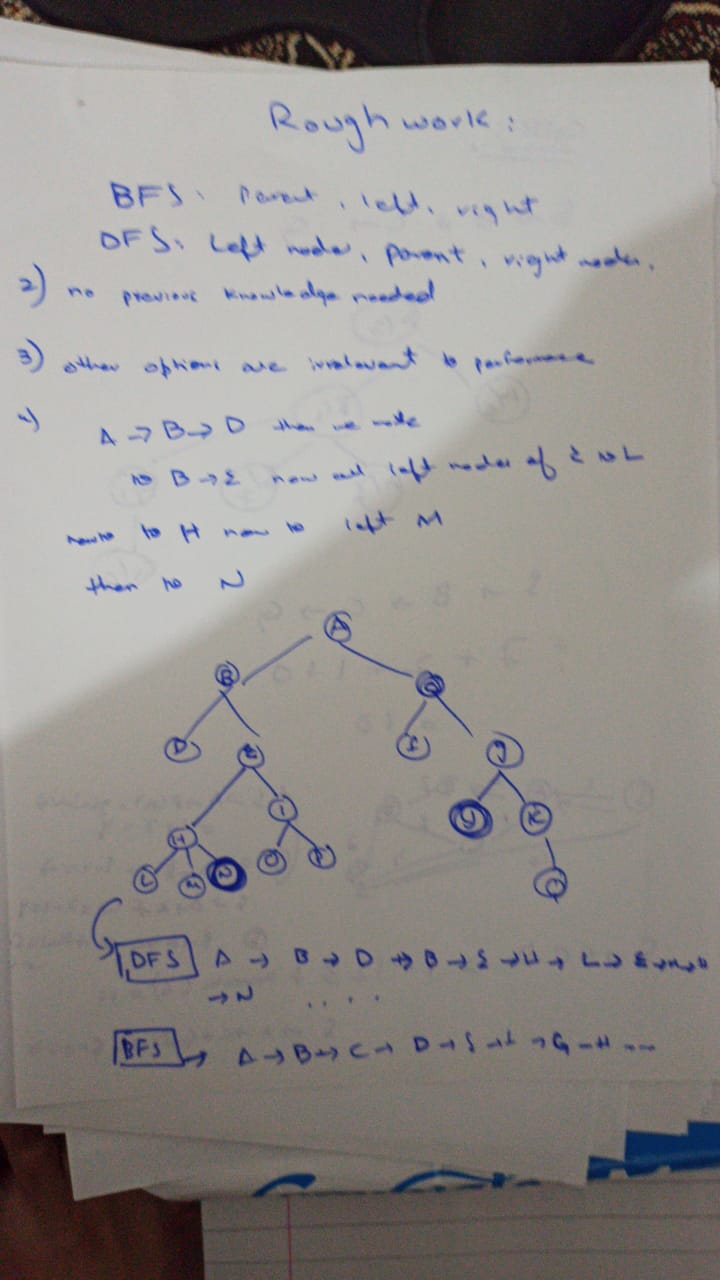 Rough work :
BFS : Parent , left , right
DFS : Left node , parent , right node .
2) no previous knowledge needed
3) other options are irrelevant to performance
4) A → B → D then we
to B → E now all left nodes of E to L
to H now to left M
then to N
A
B
D E I J
H I J K
L M O P
DFS A → B → D → B → E → H → L →
→ N . . . .
BFS → A → B → C → D → E → → G → H ---